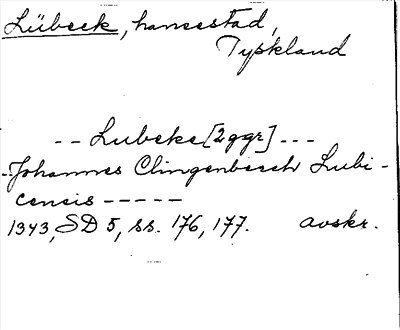 Lübeck, hansestad,
Tyskland
-- Lubeke [2 ggr] ---
- Johannes Clingenbesch Lubi-
censis -----
1343, SD 5, ss. 176, 177. avskr.